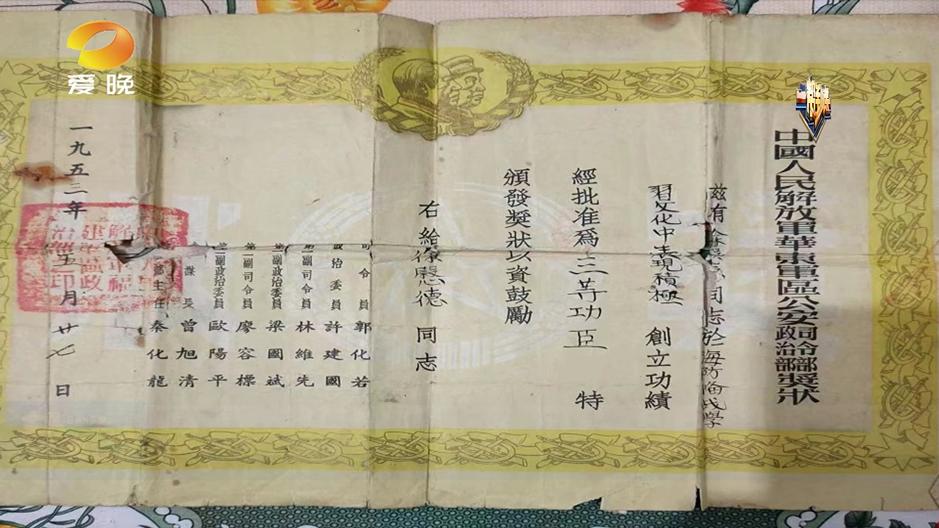 爱晚
中國人民解放軍華東軍區公安司令部政治部獎狀
茲有徐應德同志於海防備戰學
習文化中表現積極 創立功績
經批准爲三等功臣 特
頒發獎狀以資鼓勵
右給徐應德同志
司令員 郭化若
政治委員 許建國
第一副司令員 林維先
第一副政治委員 梁國斌
第二副司令員 廖容標
第二副政治委員 歐陽平
謀長 曾旭清
主任 秦化龍
一九五三年五月廿七日